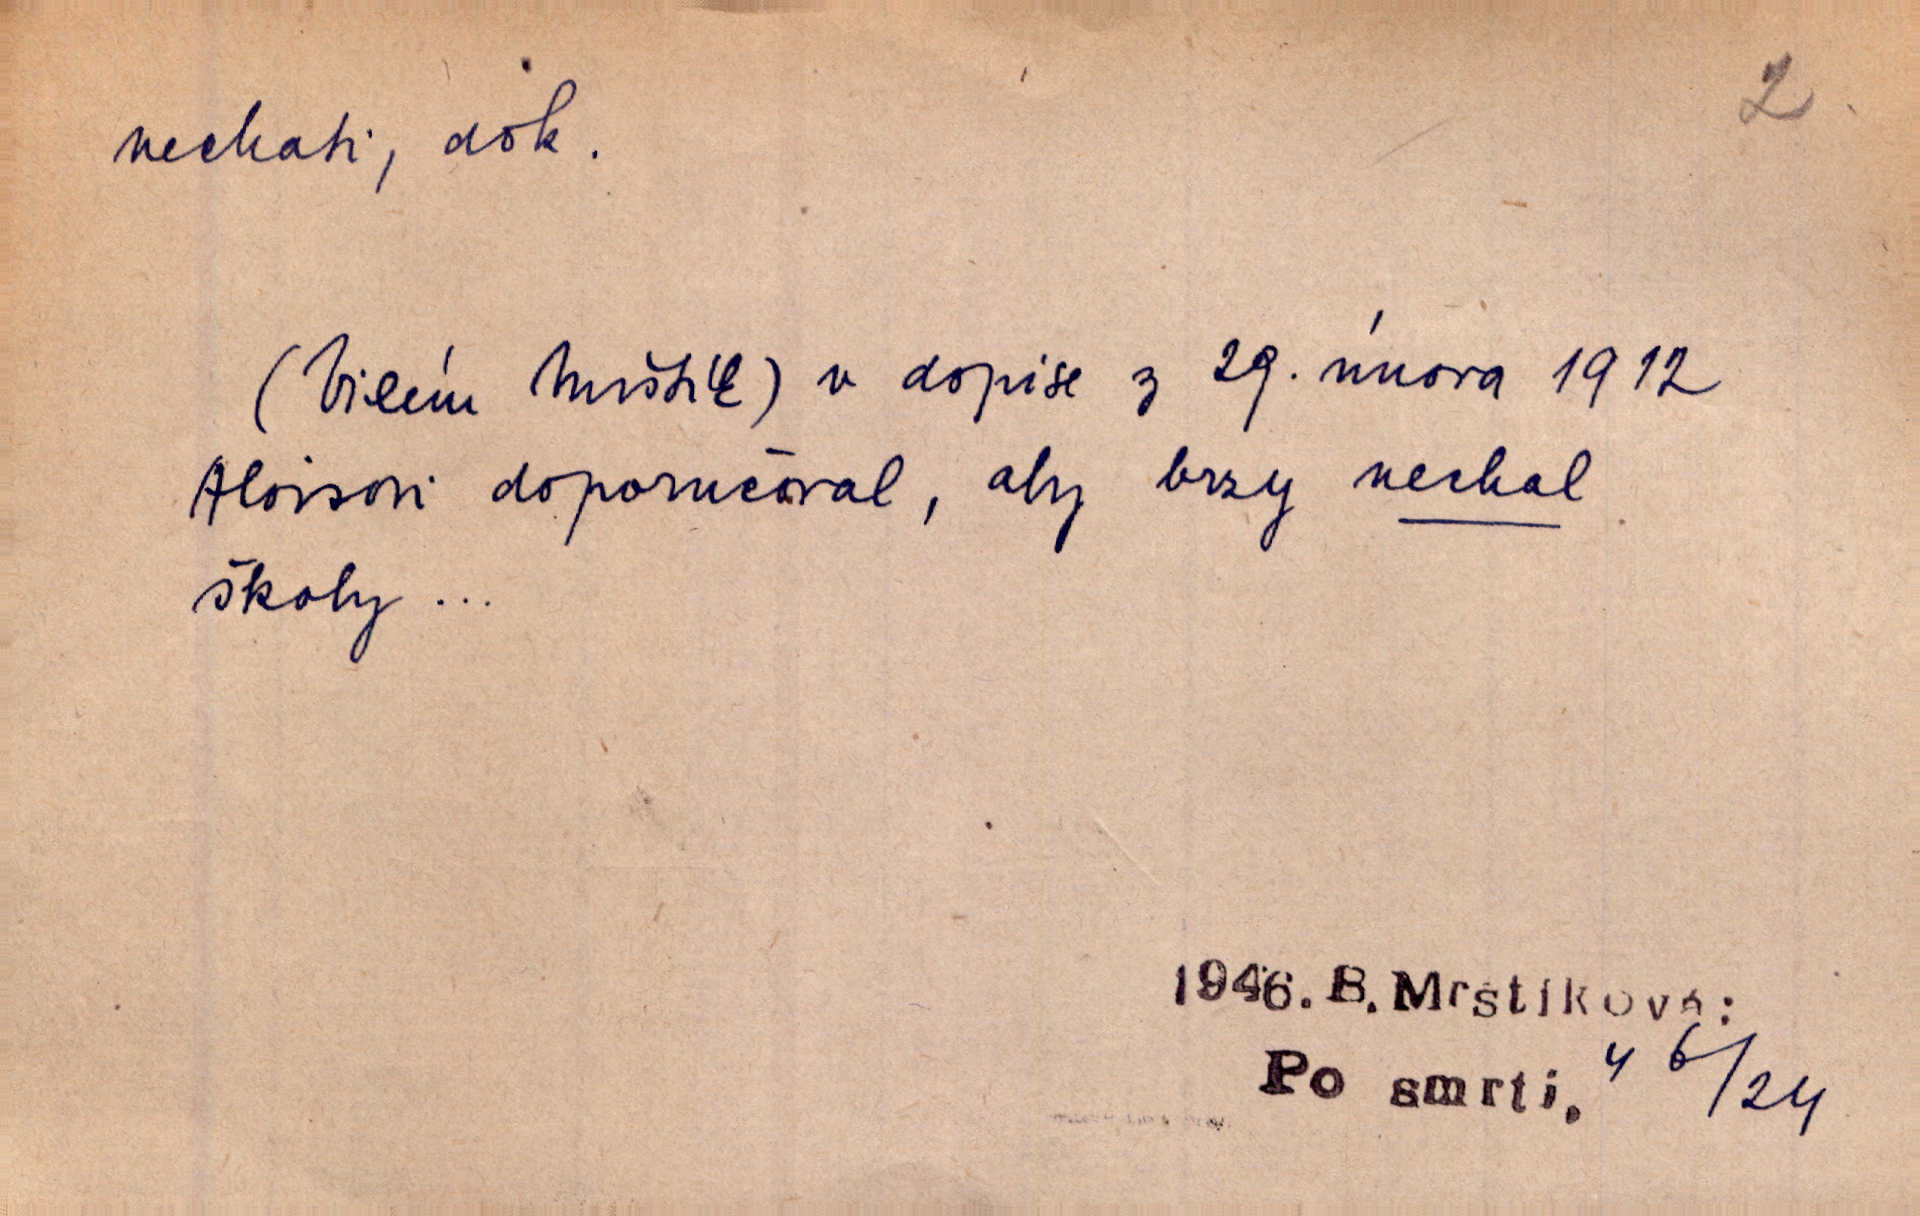 2
nechati, dok.
(Vilém Mrštík) v dopise z 29. února 1912
Aloisovi doporučoval, aby brzy nechal
školy ...
1946. B. Mrštíková:
Po smrti. 46/24